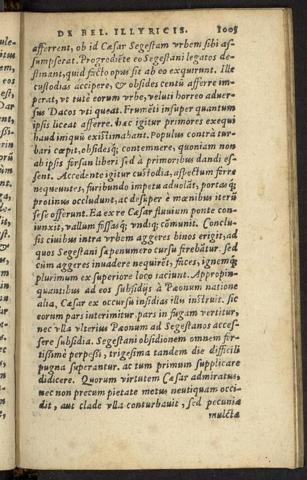 DE BEL. ILLYRICIS. 1005
afferrent, ob id Cæsar Segestam vrbem sibi as-
sumpserat. Progrediẽte eo Segestani legatos de-
stinant, quid facto opus sit ab eo exquirunt. Ille
custodias accipere, & obsides centũ afferre im-
perat, vt tutè eorum vrbe, veluti horreo aduer-
sus Dacos vti queat. Frumẽti insuper quantum
ipsis liceat afferre. hæc igitur primores exequi
haud iniquũ existimabant. Populus contrà tur-
bari cœpit, obsidesq́; contemnere, quoniam non
ab ipsis forsan liberi sed à primoribus dandi es-
sent. Accedente igitur custodia, aspectum ferre
nequeuntes, furibundo impetu aduolãt, portasq́;
protinus occludunt, ac desuper è mœnibus iterũ
sese offerunt. Ea ex re Cæsar fluuium ponte con-
iunxit, vallum fossasq́; vndiq; cõmunit. Conclu-
sis ciuibus intra vrbem aggeres binos erigit, ad
quos Segestani sæpenumero cursu ferebãtur. sed
cùm aggeres inuadere nequirẽt, faces, ignemq́;
plurimum ex superiore loco iaciunt. Appropin-
quantibus ad eos subsidijs à Pæonum natione
alia, Cæsar ex occursu insidias illu instruit. sic
eorum pars interimitur, pars in fugam vertitur,
nec vlla vlterius Pæonum ad Segestanos acces-
sere subsidia. Segestani obsidionem omnem for-
tissimè perpessi, trigesima tandem die difficili
pugna superantur. ac tum primum supplicare
didicere. Quorum virtutem Cæsar admiratus,
nec non precum pietate metus neutiquam occi-
dit, aut clade vlla conturbauit, sed pecunia
mulcta